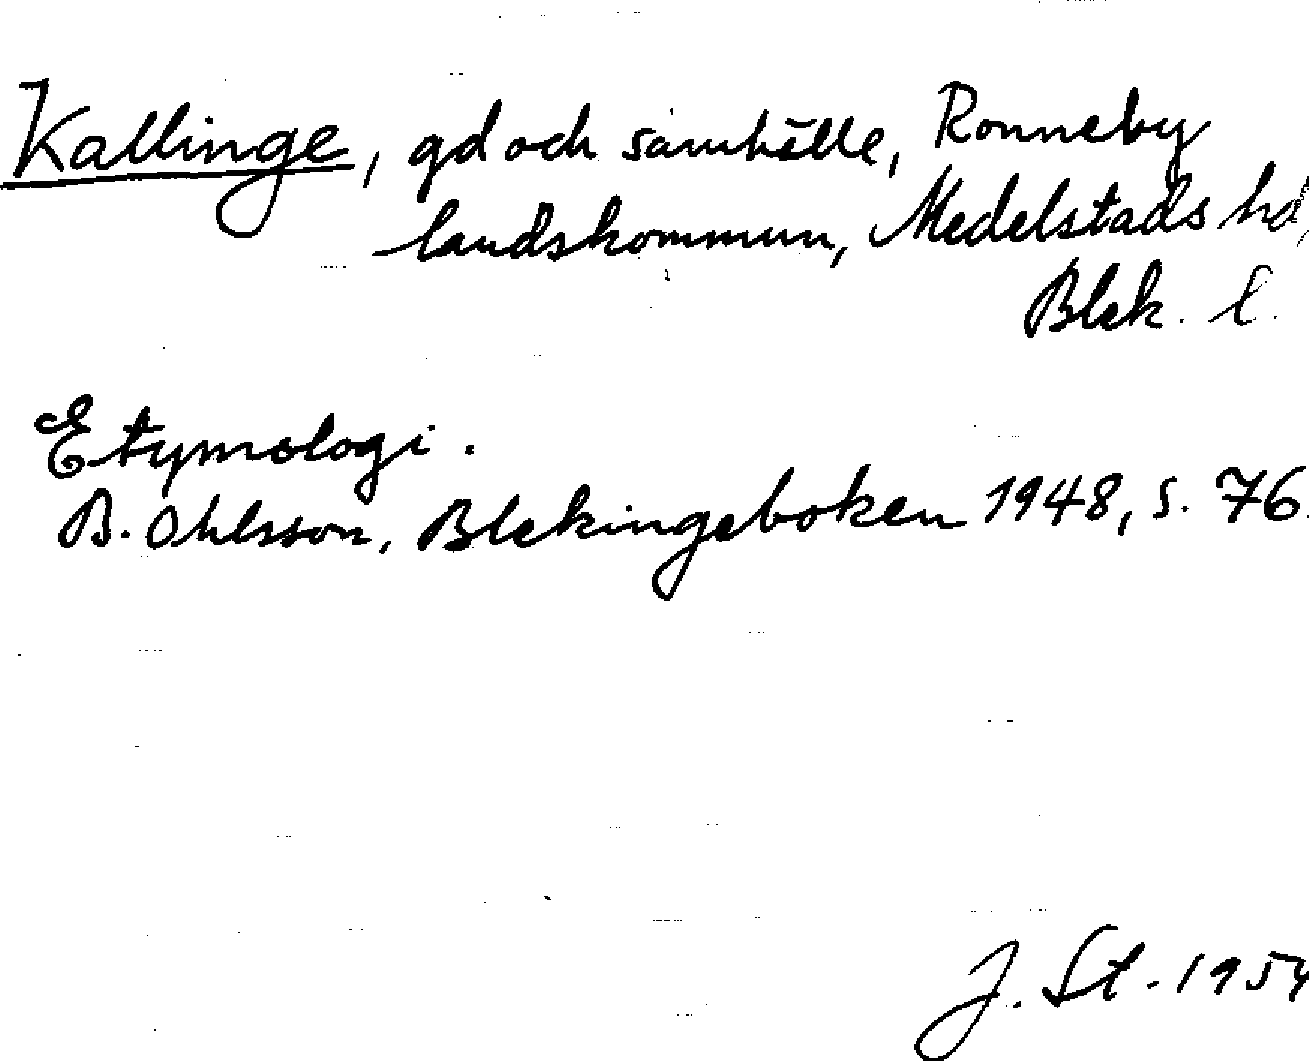 Kallinge, gd och samhälle, Ronneby
landskommun, Medelstads hd,
Blek. l.
Etymologi.
B. Ohlsson, Blekingeboken 1948, s. 76.
J. St. 1954